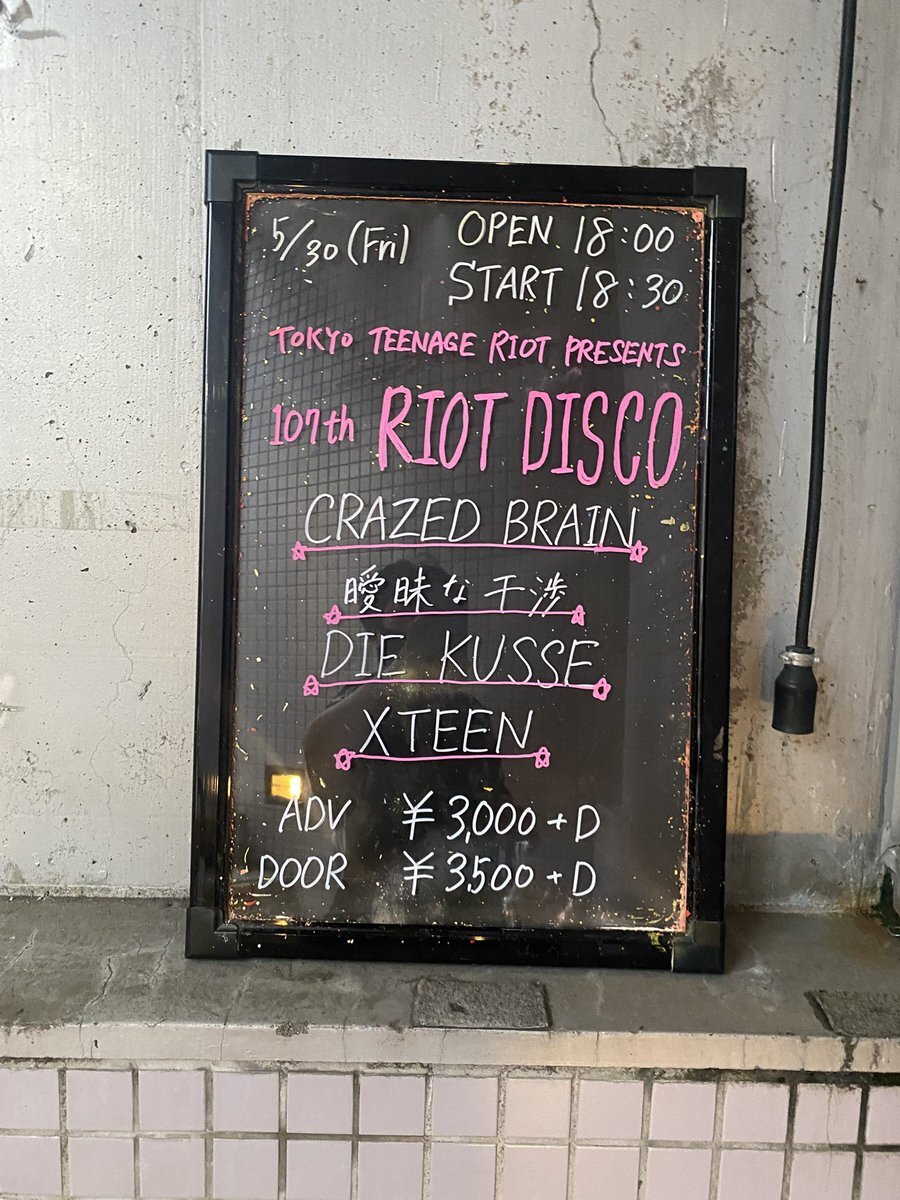 5/30(Fri) OPEN 18:00
START 18:30
TOKYO TEENAGE RIOT PRESENTS
107th RIOT DISCO
CRAZED BRAIN
曖昧な干渉
DIE KUSSE
XTEEN
ADV ¥3,000+D
DOOR ¥3,500+D